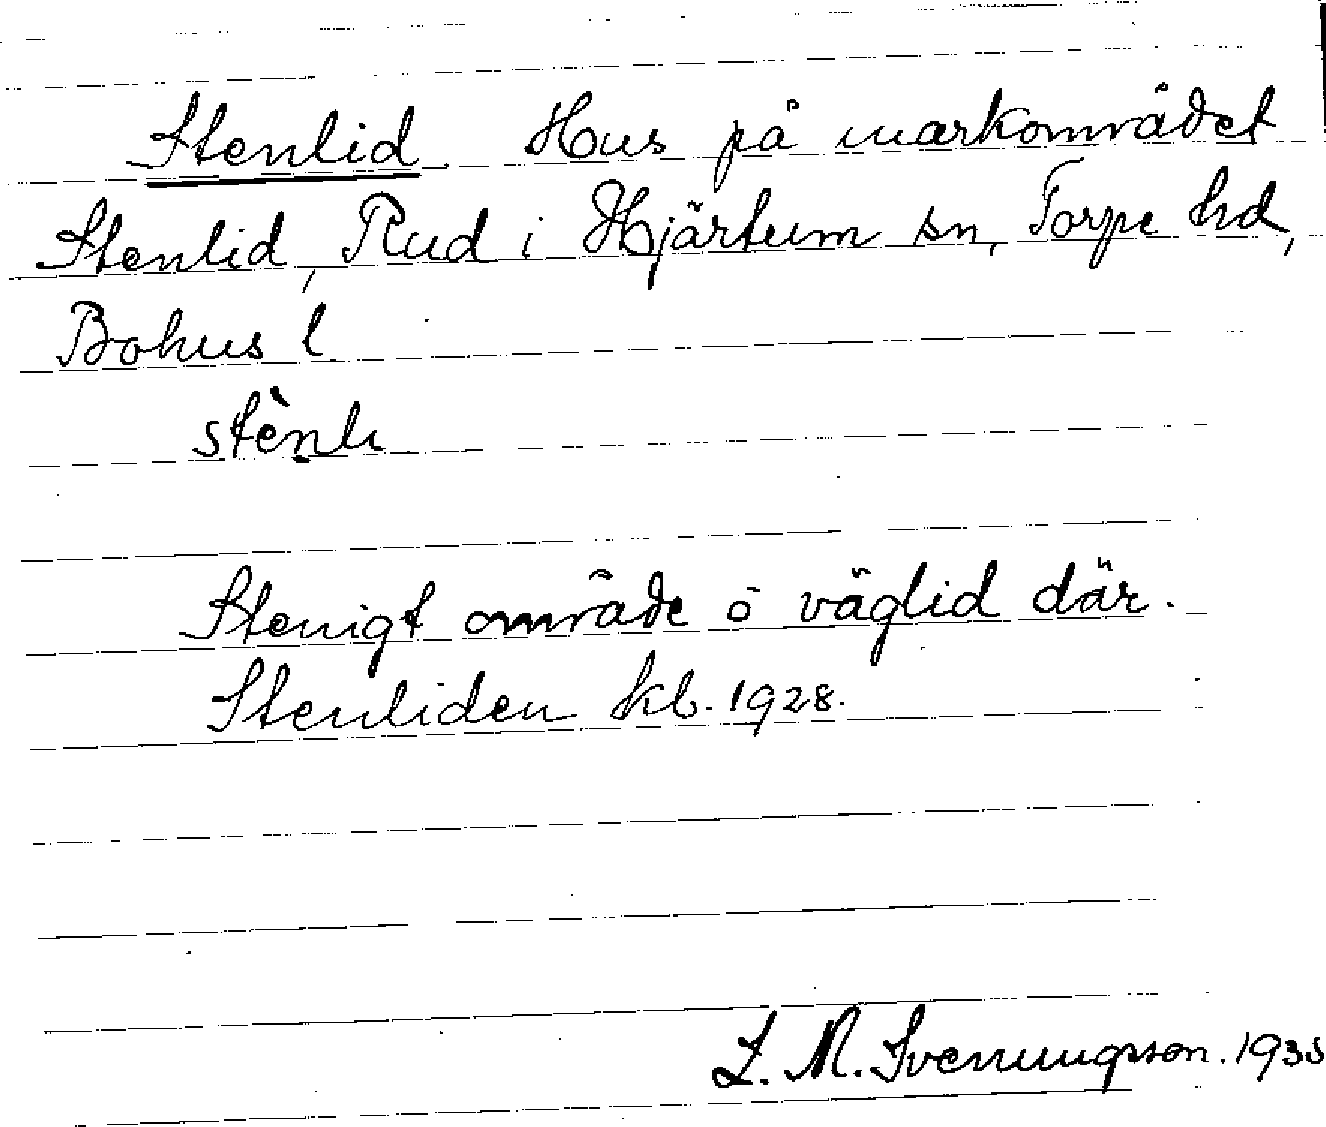 Stenlid. Hus på markområdet
Stenlid, Rud i Hjärtum sn, Torpe hd,
Bohus l
stènli
Stenigt område o väglid där.
Stenliden kb. 1928.
L. M. Svenungsson. 1935